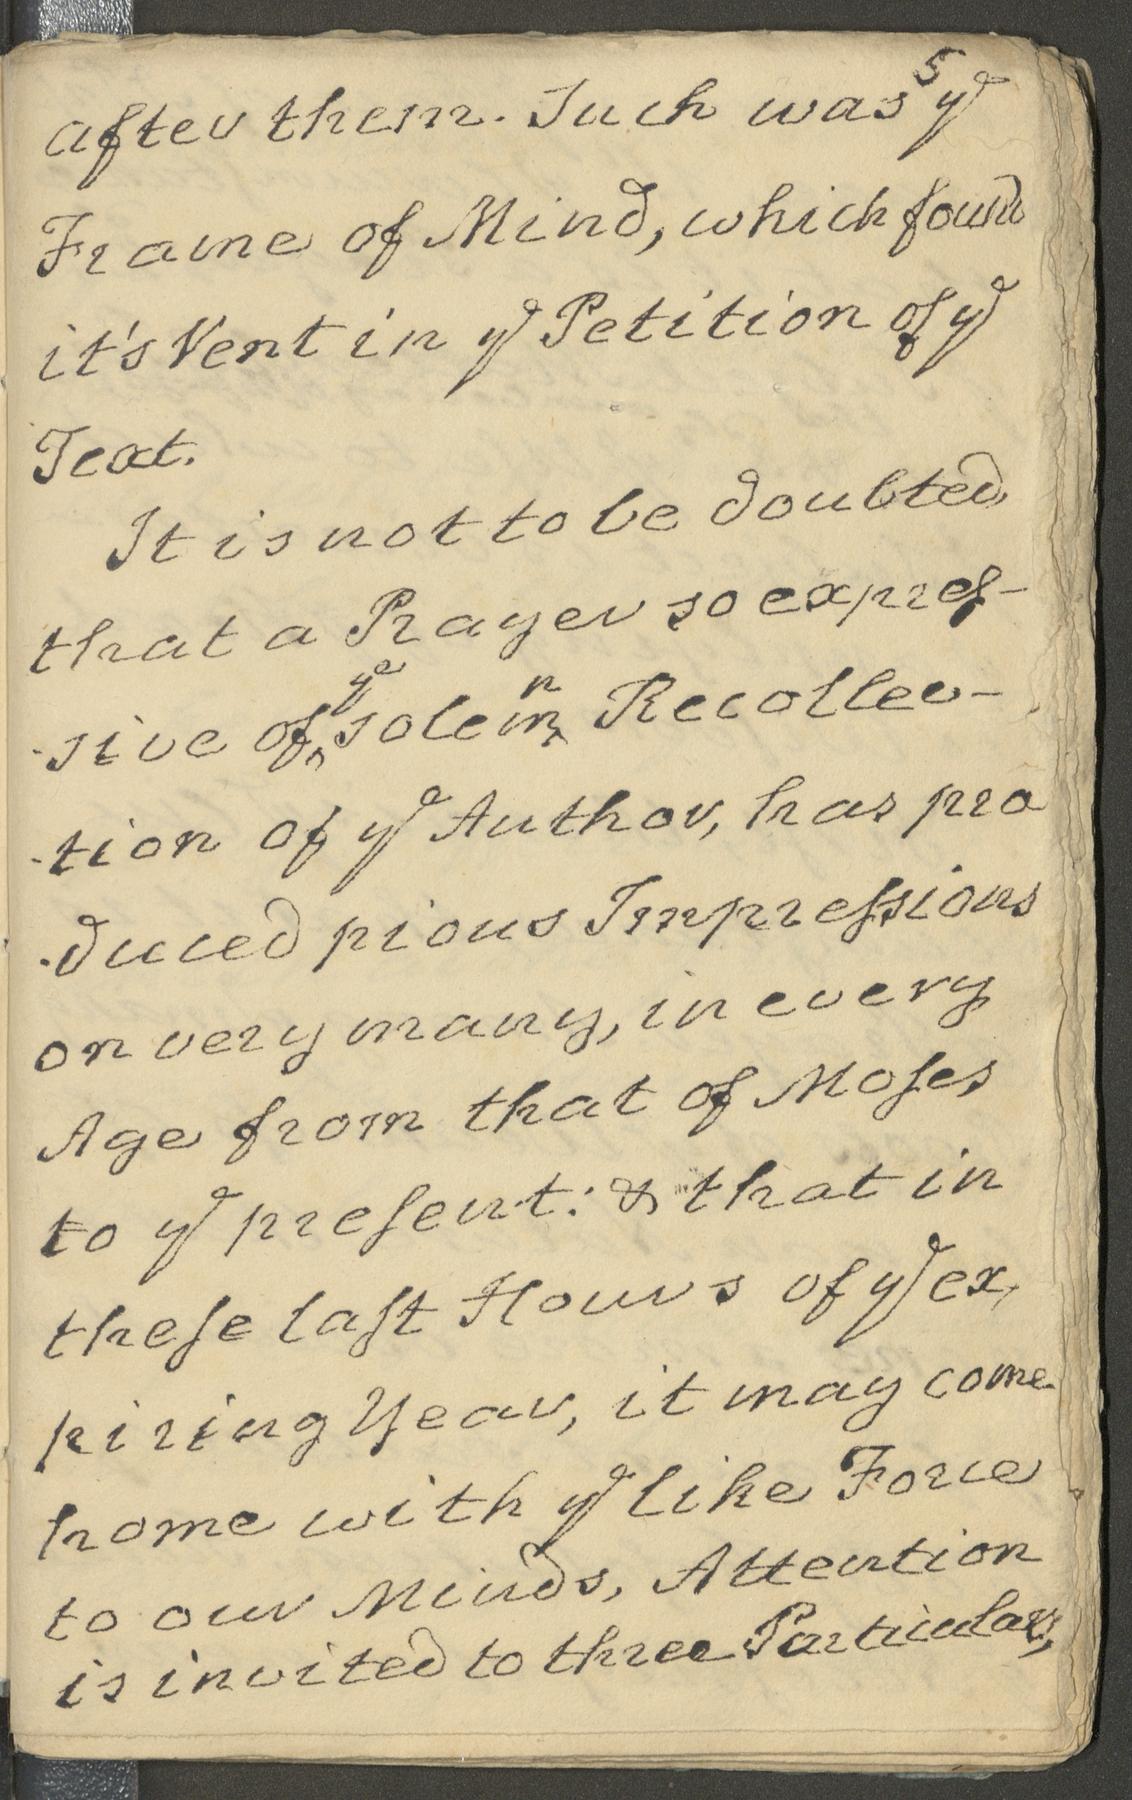 5
after them. Such was yͤ
Frame of Mind, which found
it's Vent in yͤ Petition of yͤ
Text.
It is not to be doubted
that a Prayer so expreſ-
sive of ^yͤ solemn Recollec-
-tion of yͤ Author, has pro
-duced pious Impreſsions
on very many, in every
Age from that of Moſes
to yͤ preſent: & that in
theſe laſt Hours of yͤ ex,
piring Year, it may come
home with yͤ like Force
to our Minds, Attention
is invited to three Particulars,